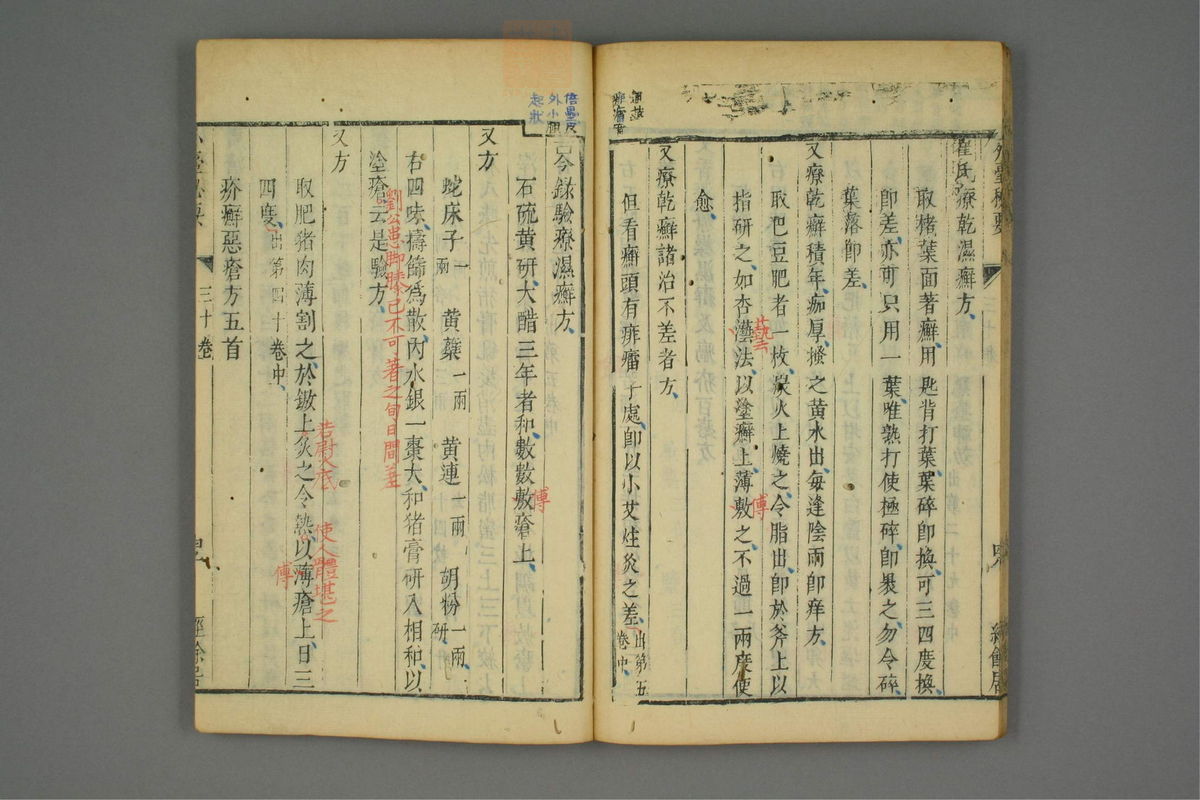 外臺祕要
崔氏療乾濕癬方
取楮葉面著癬用匙背打葉葉碎卽換可三四度換
卽差亦可只用一葉唯熟打使極碎卽裹之勿令碎
葉落卽差
又療乾癬積年痂厚搔之黃水出每逢陰雨卽痒方
取巴豆肥者一枚炭火上燒之令脂出卽於斧上以
指研之如杏灎法以塗癬上薄敷之不過一兩度便
藝
傅
愈
又療乾癬諸治不差者方
但看癬頭有痱癗子處卽以小艾炷灸之差
出第五
卷中
經餘居
古今錄驗療濕癬方
石硫黃研大醋三年者和數數敷瘡上
傅
又方
蛇床子一兩 黃蘗一兩 黃連一兩 胡粉一兩研
右四味擣篩爲散內水銀一棗大和猪膏研入相和以
塗瘡云是驗方
劉公患脚膝已不可著之旬日間差
又方
取肥猪肉薄割之於鏾上炙之令熱以薄瘡上日三
四度出第四十卷中
使人體堪之
傅
疥癬惡瘡方五首
三十卷
經餘居